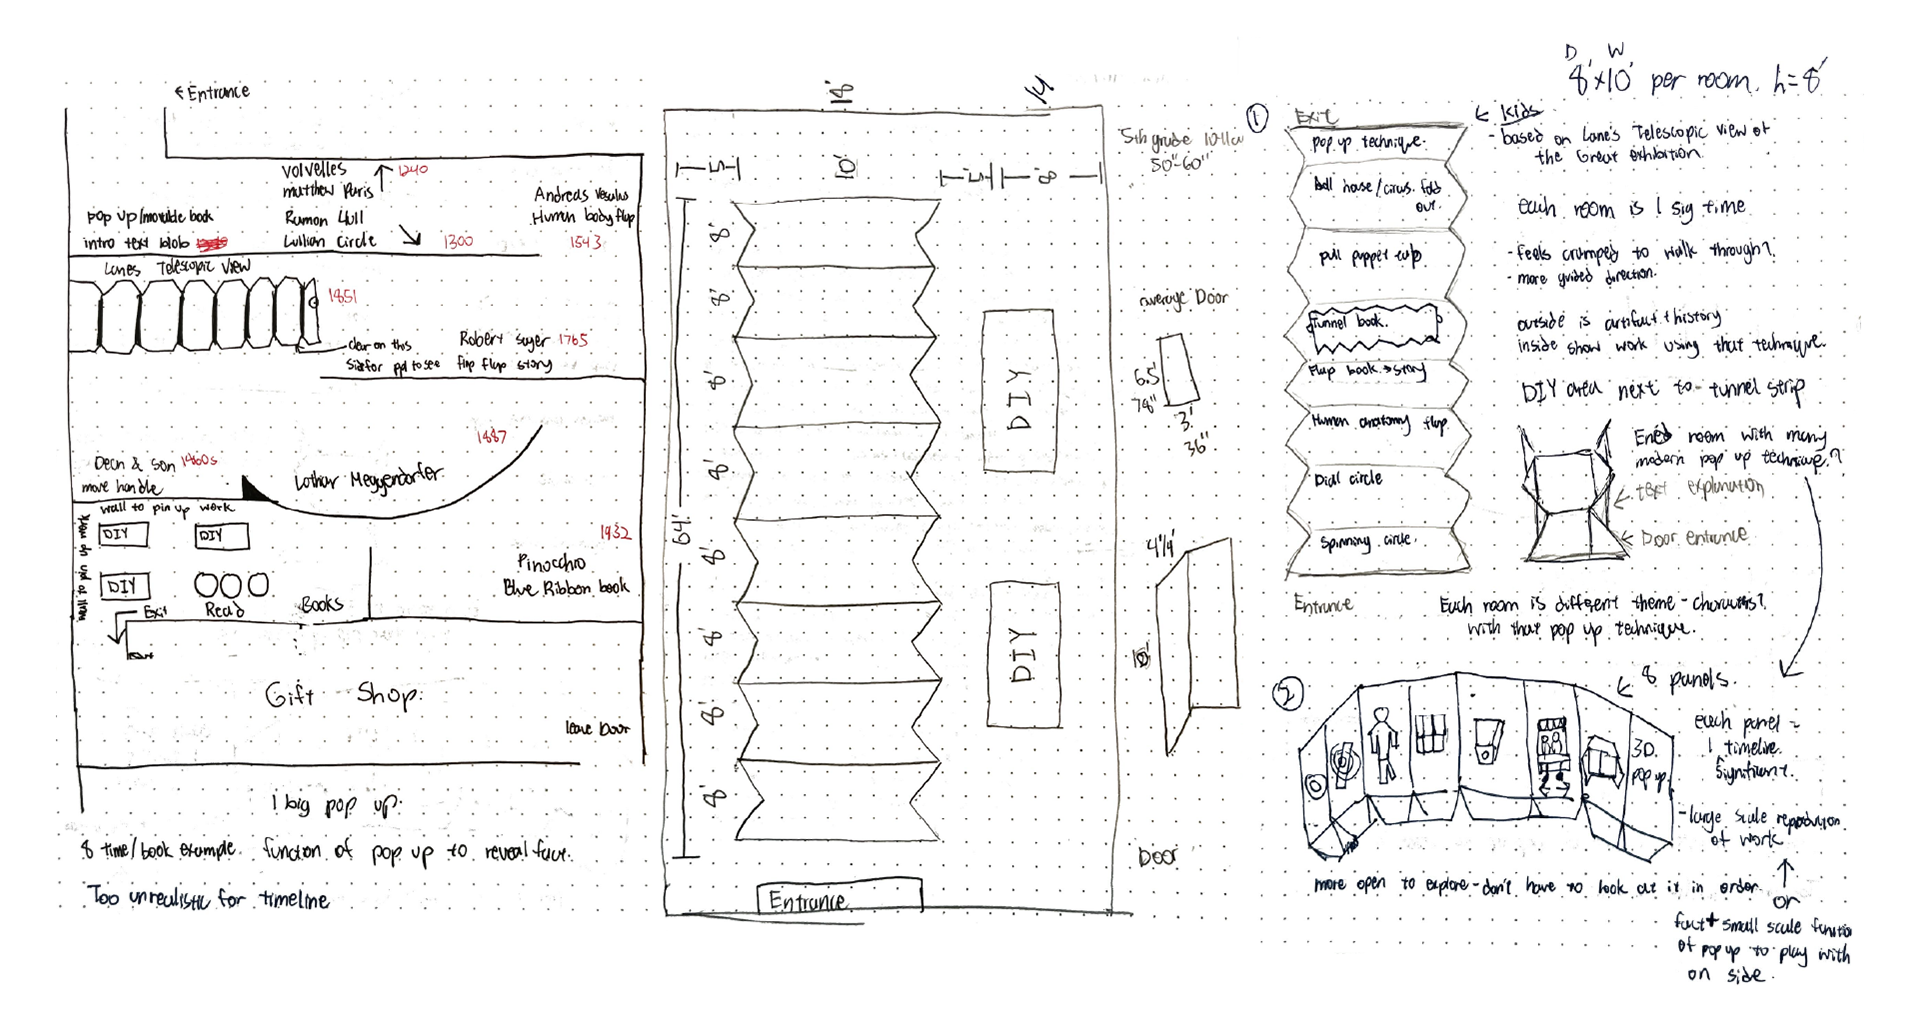 Entrance
volvelles
matthew Paris
1240
Ramon Llull
Lullian Circle
1300
Andreas Vesalius
Human body flap
1543
pop up/movable book
intro text blob
Lanes Telescopic View
1851
clear on this
side for ppl to see
Robert Sayer 1765
flip flap story
1887
Lothar Meggendorfer
Dean & Son 1860s
move handle
wall to pin up work
wall to pin up work
DIY
DIY
DIY
Exit
Read
Books
1932
Pinocchio
Blue Ribbon book
Gift Shop.
leave Door
1 big pop up.
8 time/book example. function of pop up to reveal fact.
Too unrealistic for timeline
18'
14
5
10'
5
8
64'
8'
8'
8'
8'
8'
8'
8'
8'
DIY
DIY
Entrance
5th grade
50"-60"
average Door
6.5'
78"
3'
36"
4'
10'
Door
D W
8'x10' per room. h=8'
1
Exit
pop up technique.
doll house/circus. fold
out.
pull puppet tab
Tunnel book.
Flap book → story
Human anatomy flap
Dial circle
Spinning circle.
Entrance
← Kids
- based on Lane's Telescopic view of
the Great exhibition.
each room is 1 sig time
- feels cramped to walk through?
- more guided direction.
outside is artifact + history
inside show work using that technique.
DIY area next to tunnel strip
End room with many
modern pop up technique?
← text explanation
← Door entrance
Each room is different theme - characters?
with that pop up technique.
2
← 8 panels.
each panel =
1 timeline
significant.
3D.
pop up.
- large scale reproduction
of work
more open to explore - don't have to look at it in order.
or
fact + small scale function
of pop up to play with
on side.